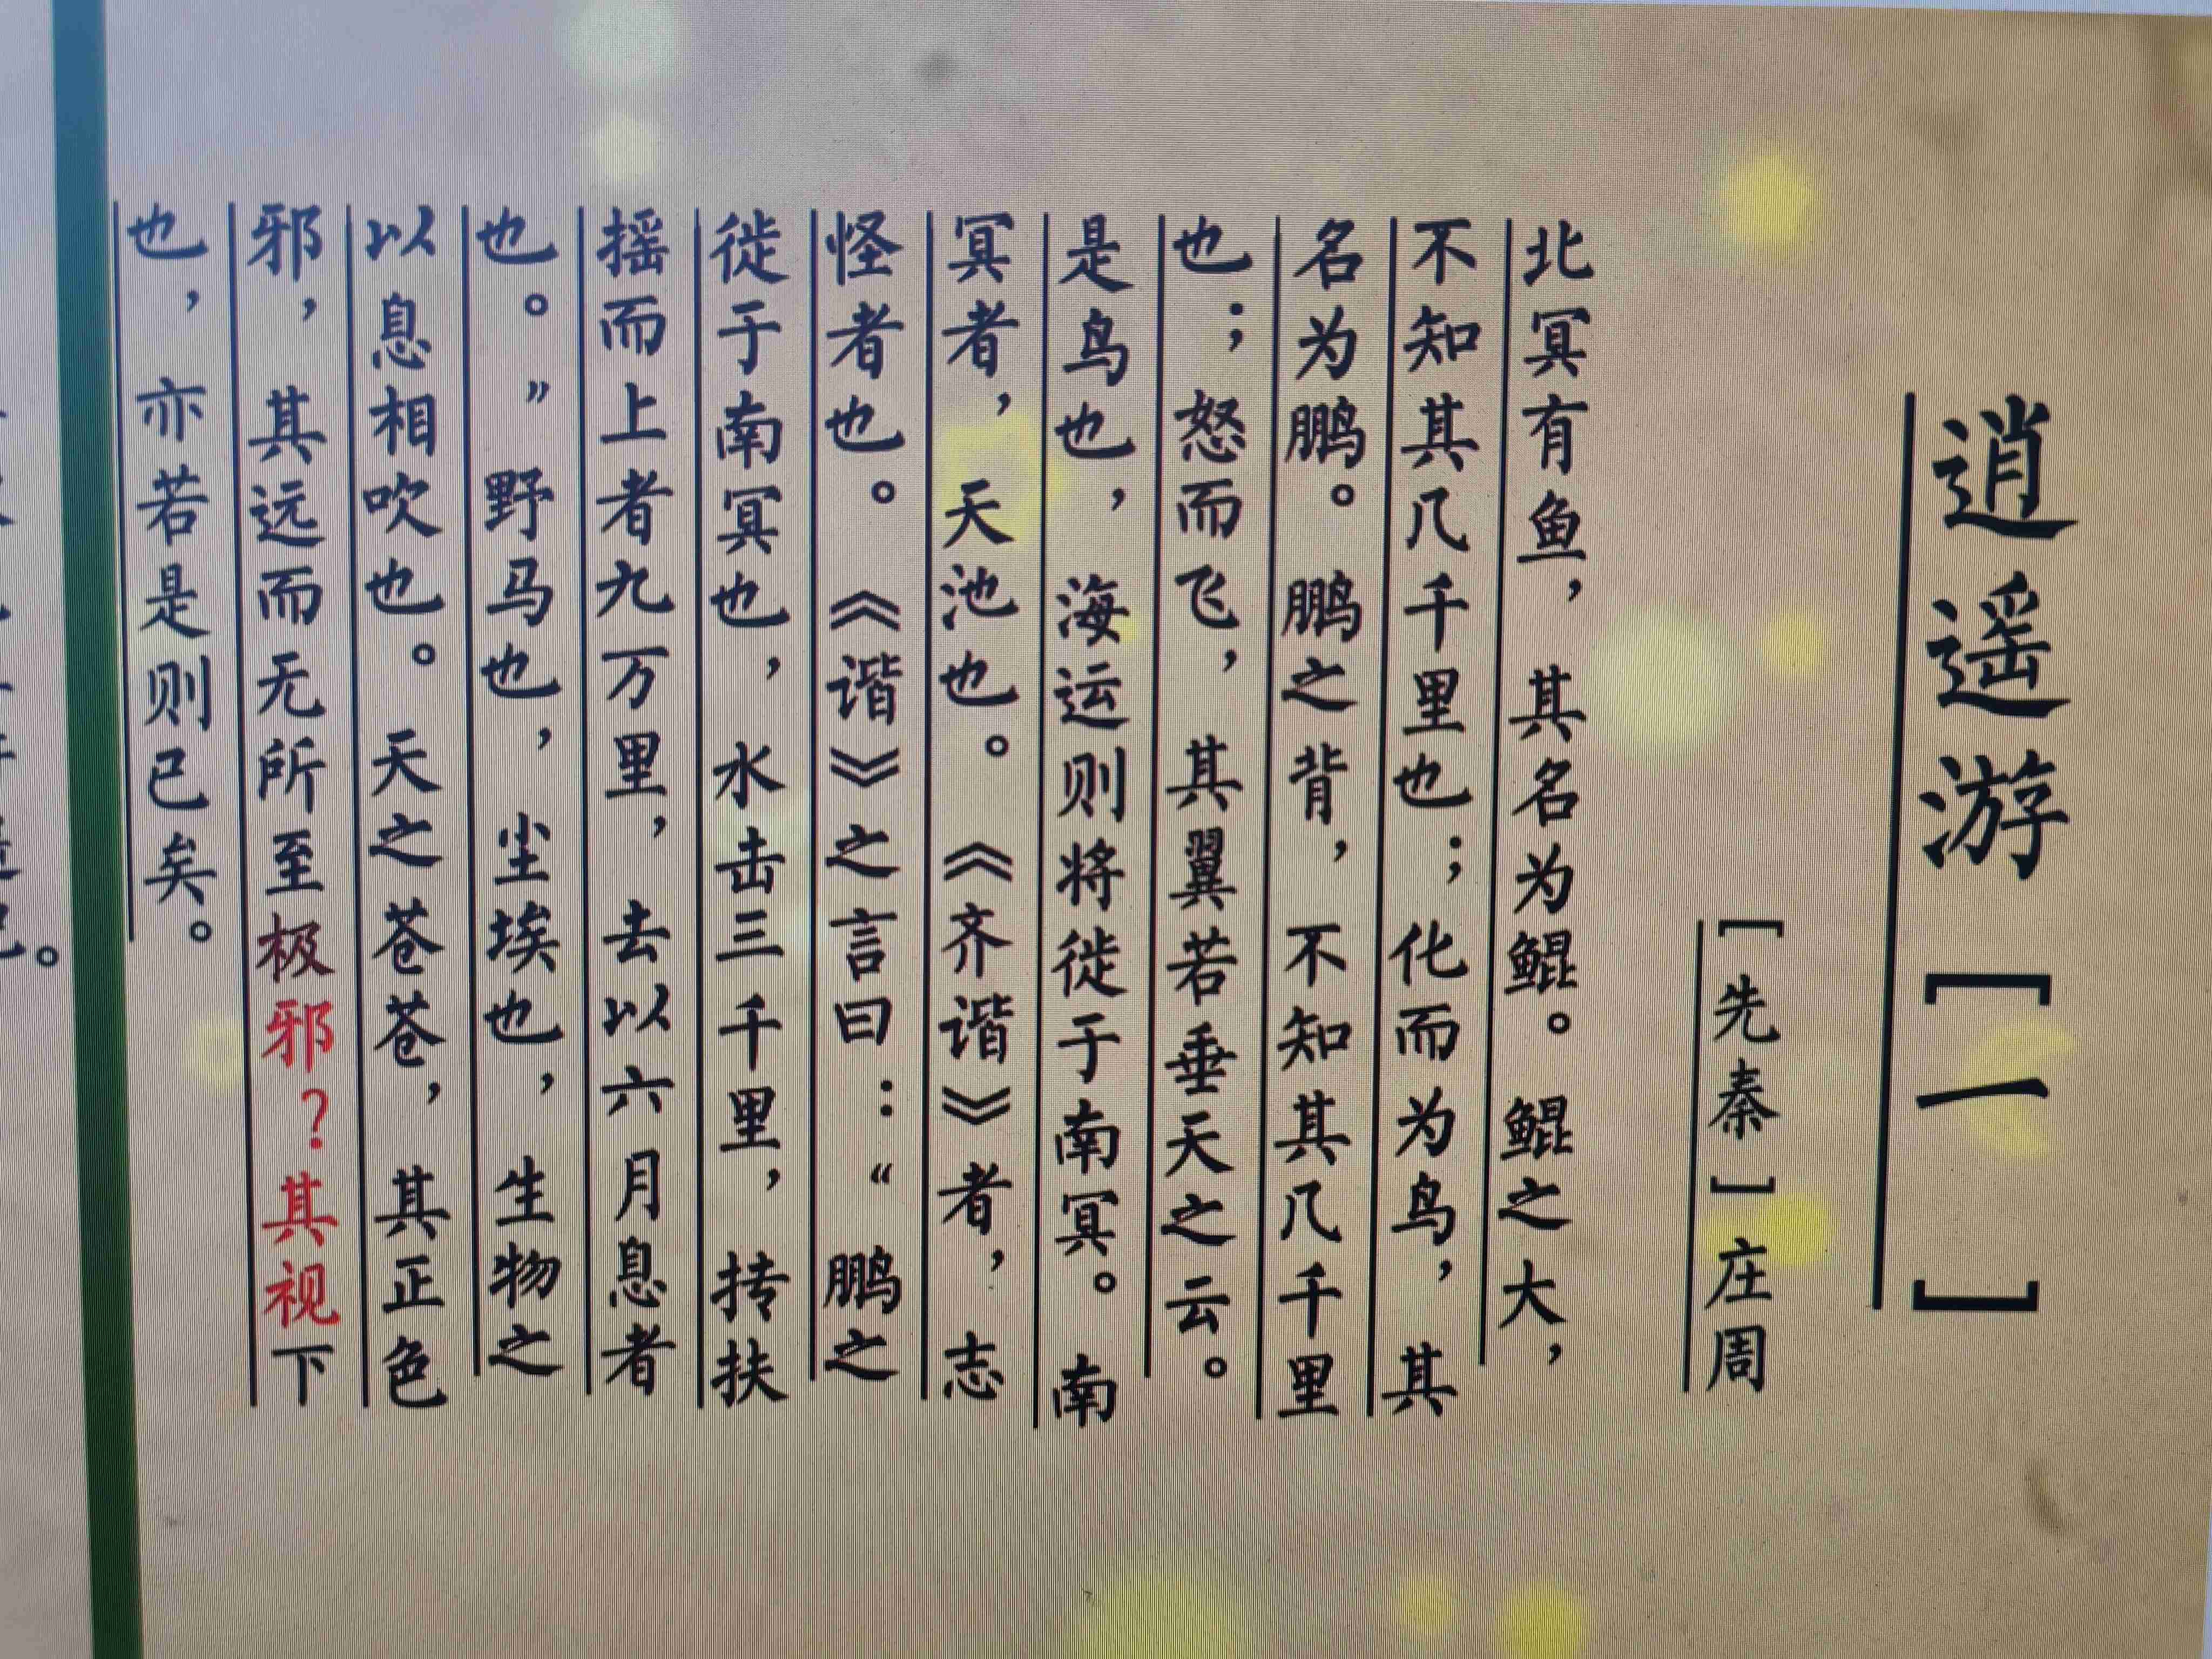 逍遥游［一］
［先秦］庄周
北冥有鱼，其名为鲲。鲲之大，
不知其几千里也；化而为鸟，其
名为鹏。鹏之背，不知其几千里
也；怒而飞，其翼若垂天之云。
是鸟也，海运则将徙于南冥。南
冥者，天池也。《齐谐》者，志
怪者也。《谐》之言曰：“鹏之
徙于南冥也，水击三千里，抟扶
摇而上者九万里，去以六月息者
也。”野马也，尘埃也，生物之
以息相吹也。天之苍苍，其正色
邪，其远而无所至极邪？其视下
也，亦若是则已矣。